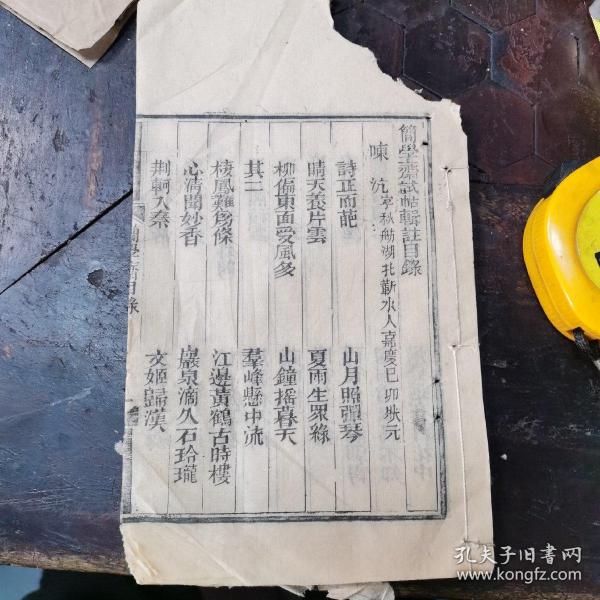 簡學齋試帖輯註目錄
陳沆字秋舫湖北蘄水人嘉慶己卯狀元
詩正而葩 山月照彈琴
晴天養片雲 夏雨生眾綠
柳偏東面受風多 山鐘搖暮天
其二 羣峰懸中流
棲鳳難為條 江邊黃鶴古時樓
心清聞妙香 巖泉滴久石玲瓏
荆軻入秦 文姬歸漢
簡學齋目錄
孔夫子旧書网
www.kongfz.com